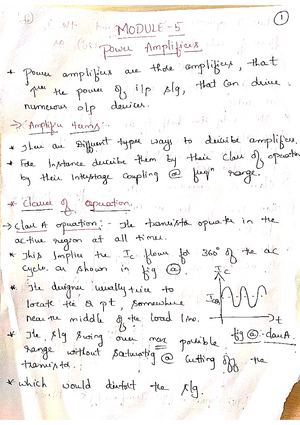 1
MODULE-5
Power Amplifiers
* Power amplifiers are those amplifiers, that
the power of i/p s/g, that can drive
numerous o/p devices.
→ Amplifier terms:-
* There are Different types ways to describe amplifiers.
* For Instance describe them by their Class of operation
by their Interstage coupling @ freqn range.
* Classes of operation.
→ Class A operation:- The transistor operate in the
active region at all times.
* This Implies the Ic flows for 360° of the ac
cycle as shown in fig (a).
* The designer usually tries to
locate the Q pt, somewhere
near the middle of the load line.
Ic
t
fig (a):- class A.
* The s/g swing over max possible
range without saturating @ Cutting off the
transistor.
* which would distort the s/g.